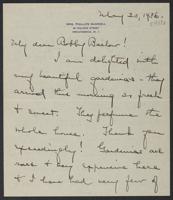 May 20, 1936.
MRS. PHILLIPS
My dear Bobby Barlow!
I am delighted with
my beautiful gardenias - they
arrived this morning as fresh
& sweet. They perfume the
whole house. Thank you
exceedingly! Gardenias are
rare & very expensive here
& I have had very few of